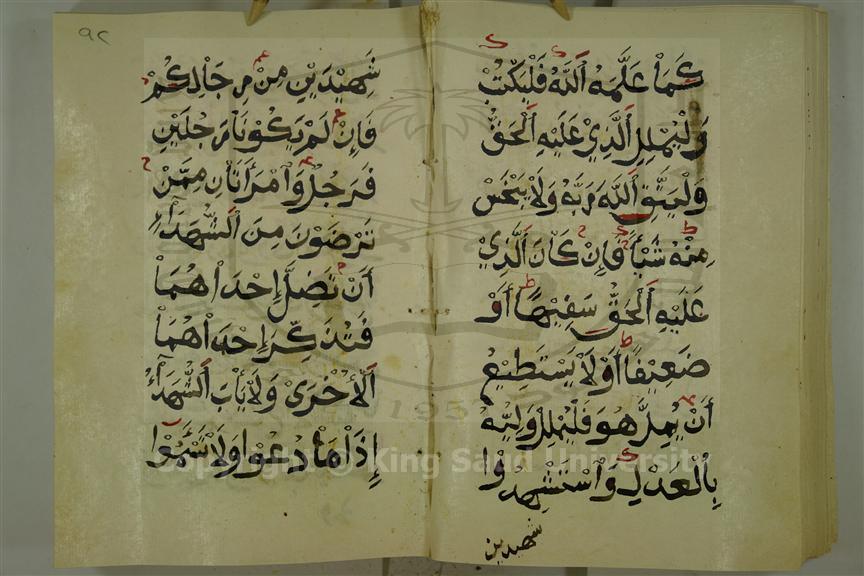 كَمَا عَلَّمَهُ اَللَّهُ فَلْيَكْتُبْ
وَلْيُمْلِلِ اَلَّذِيْ عَلَيْهِ اَلْحَقُّ
وَلْيَتَّقِ اَللَّهَ رَبَّهُ وَلَا يَبْخَسْ
مِنْهُ شَيْئًا فَإِنْ كَانَ اَلَّذِيْ
عَلَيْهِ اَلْحَقُّ سَفِيْهًا أَوْ
ضَعِيْفًا أَوْ لَا يَسْتَطِيْعُ
أَنْ يُمِلَّ هُوَ فَلْيُمْلِلْ وَلِيُّهُ
بِالْعَدْلِ وَاسْتَشْهِدُوْا
شهيدين
٩٢
شَهِيْدَيْنِ مِنْ رِجَالِكُمْ
فَإِنْ لَمْ يَكُوْنَا رَجُلَيْنِ
فَرَجُلٌ وَامْرَأَتَانِ مِمَّنْ
تَرْضَوْنَ مِنَ اَلشُّهَدَاءِ
أَنْ تَضِلَّ إِحْدَاهُمَا
فَتُذَكِّرَ إِحْدَاهُمَا
اَلْأُخْرَىْ وَلَا يَأْبَ اَلشُّهَدَاءُ
إِذَا مَا دُعُوْا وَلَا تَسْأَمُوْا
Copyright © King Saud University
1957